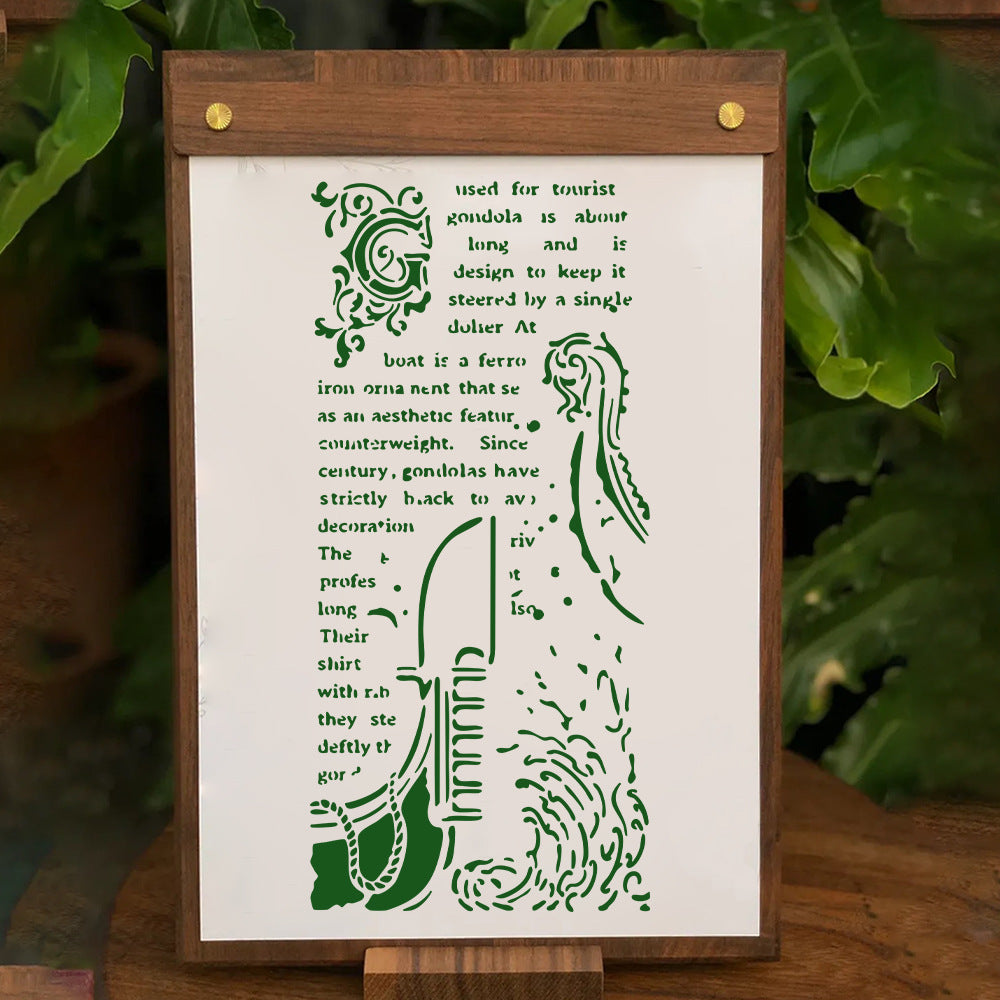 G used for tourist
gondola is about
long and is
design to keep it
steered by a single
At
boat is a ferro
iron that se
as an aesthetic featur
counterweight. Since
century, gondolas have
strictly to av
decoration
The riv
profes
long lso
Their
shirt
with
they ste
deftly th